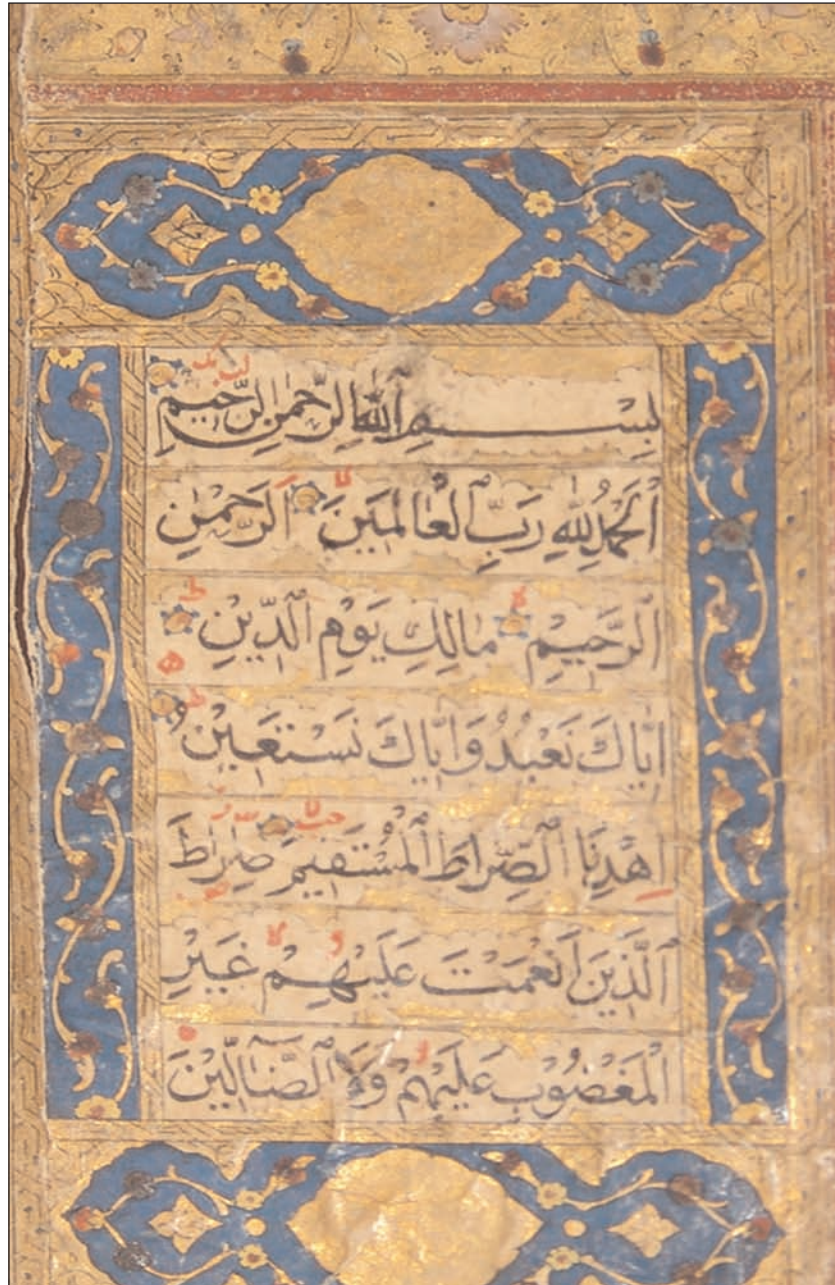 بِسْمِ ٱللّٰهِ الرَّحْمٰنِ الرَّحِيمِ
اَلْحَمْدُ لِلّٰهِ رَبِّ ٱلْعَالَمِينَ اَلرَّحْمٰنِ
ٱلرَّحِيمِ مَالِكِ يَوْمِ ٱلدِّينِ
اِيَّاكَ نَعْبُدُ وَاِيَّاكَ نَسْتَعِينُ
اِهْدِنَا ٱلصِّرَاطَ ٱلْمُسْتَقِيمَ صِرَاطَ
ٱلَّذِينَ اَنْعَمْتَ عَلَيْهِمْ غَيْرِ
ٱلْمَغْضُوبِ عَلَيْهِمْ وَلَا ٱلضَّآلِّينَ